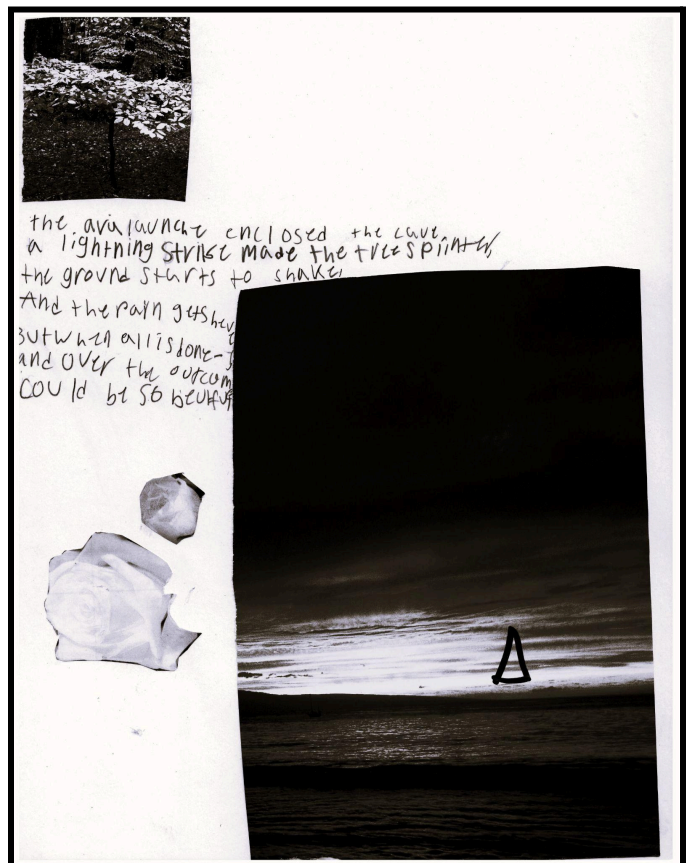 the avalaunche enclosed the cave,
a lightning strike made the tree splinter,
the ground starts to shake,
And the pain gets
But when all is done-
and over the outcom
could be so beutiful